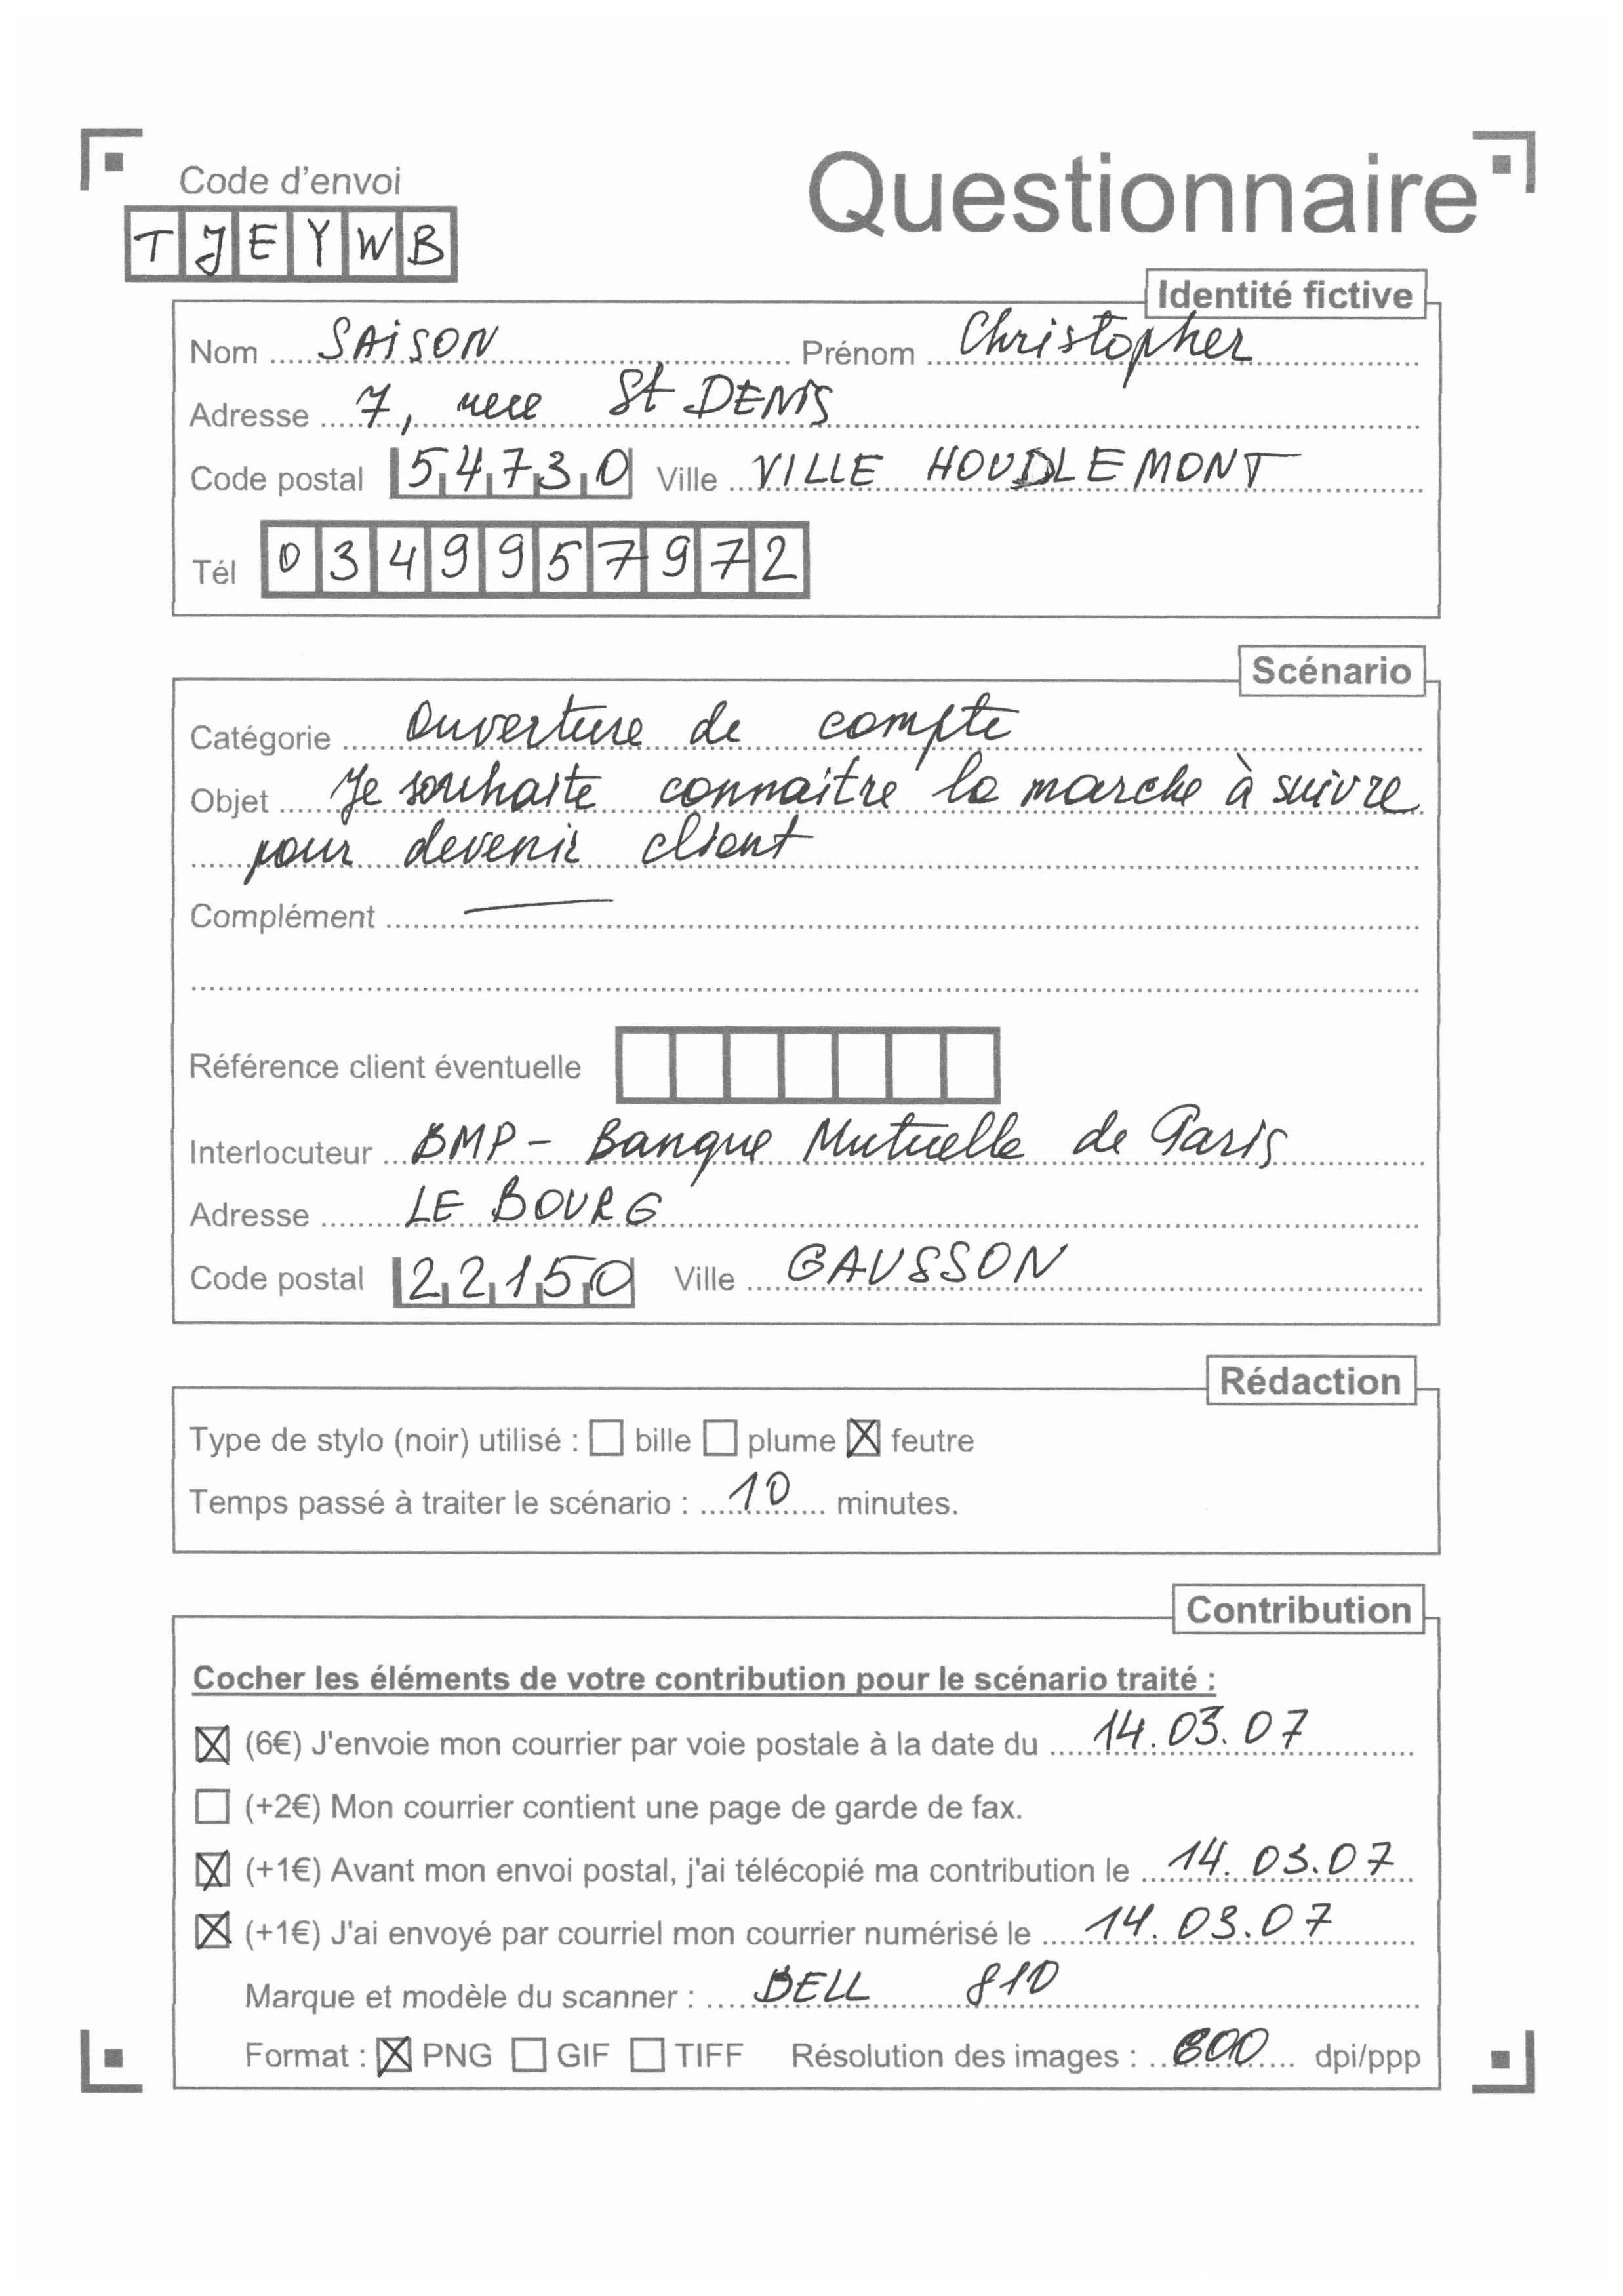 Code d'envoi
TJEYWB
Questionnaire
Identité fictive
Nom SAISON Prénom Christopher
Adresse 7, rue St DENIS
Code postal 54730 Ville VILLE HOUDLEMONT
Tél 0349957972
Scénario
Catégorie Ouverture de compte
Objet Je souhaite connaitre la marche à suivre
pour devenir client
Complément —
Référence client éventuelle
Interlocuteur BMP - Banque Mutuelle de Paris
Adresse LE BOURG
Code postal 22150 Ville GAUSSON
Rédaction
Type de stylo (noir) utilisé : bille plume feutre
Temps passé à traiter le scénario : 10 minutes.
Contribution
Cocher les éléments de votre contribution pour le scénario traité :
(6€) J'envoie mon courrier par voie postale à la date du 14.03.07
(+2€) Mon courrier contient une page de garde de fax.
(+1€) Avant mon envoi postal, j'ai télécopié ma contribution le 14.03.07
(+1€) J'ai envoyé par courriel mon courrier numérisé le 14.03.07
Marque et modèle du scanner : BELL 810
Format : PNG GIF TIFF Résolution des images : dpi/ppp